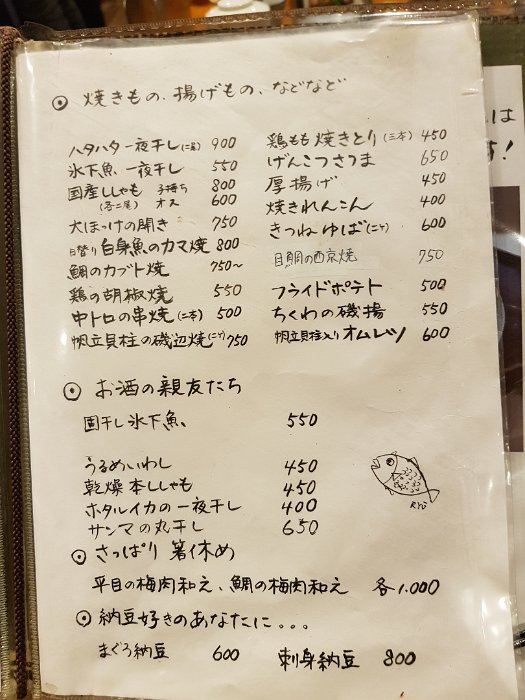 焼きもの、揚げもの、などなど
ハタハタ一夜干し(二尾) 900
氷下魚 一夜干し 550
国産ししゃも 子持ち 800
(各二尾) オス 600
大ほっけの開き 750
日替り 白身魚のカマ焼 800
鯛のカブト焼 750~
鶏の胡椒焼 550
中トロの串焼(二本) 500
帆立貝柱の磯辺焼(二ケ) 750
鶏もも焼きとり(三本) 450
げんこつさつま 650
厚揚げ 450
焼きれんこん 400
きつねゆば(二ケ) 600
目鯛の西京焼 750
フライドポテト 500
ちくわの磯揚 550
帆立貝柱入りオムレツ 600
お酒の親友たち
固干し氷下魚 550
うるめいわし 450
乾燥本ししゃも 450
ホタルイカの一夜干し 400
サンマの丸干し 650
RYO
さっぱり 箸休め
平目の梅肉和え、鯛の梅肉和え 各1.000
納豆好きのあなたに。。。
まぐろ納豆 600 刺身納豆 800
は
す!